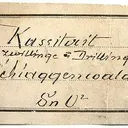 Kassiterit
Zwillinge & Drilling
Schlaggenwald
Sn O²